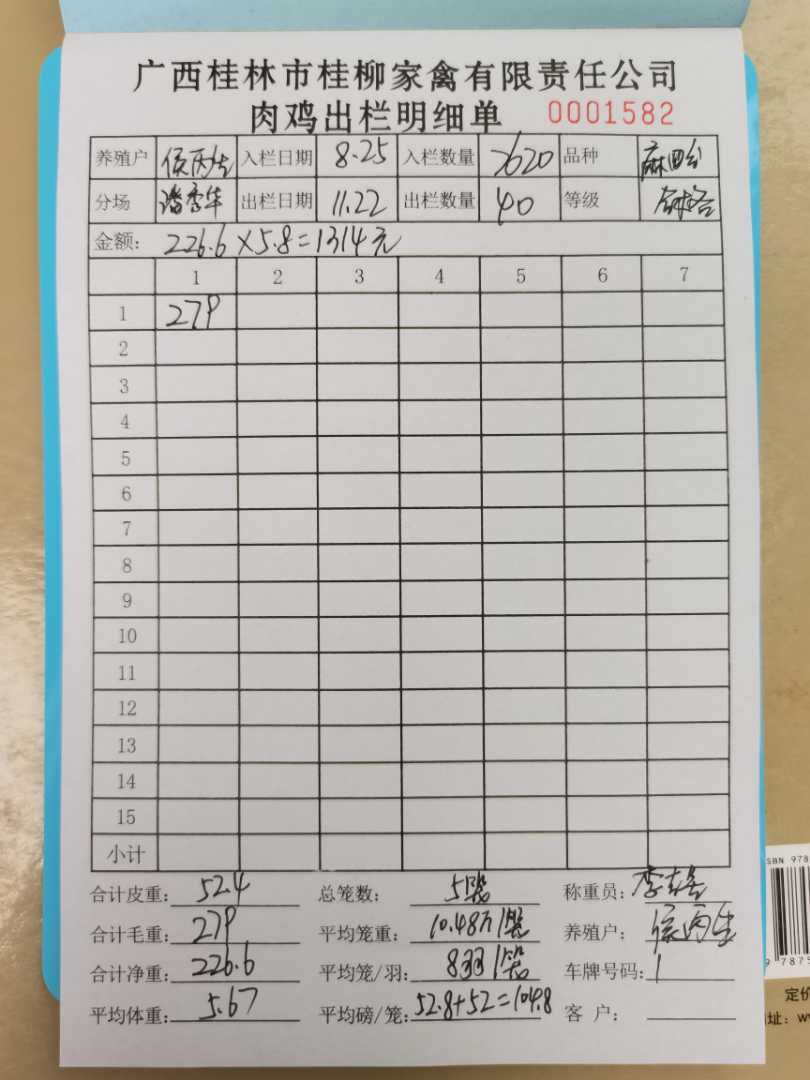 广西桂林市桂柳家禽有限责任公司
肉鸡出栏明细单 0001582
养殖户 侯丙生 入栏日期 8.25 入栏数量 7620 品种 麻
分场 潘秀华 出栏日期 11.22 出栏数量 40 等级
金额: 226.6×5.8=1314元
1 2 3 4 5 6 7
1 279
2
3
4
5
6
7
8
9
10
11
12
13
14
15
小计
合计皮重: 52.4 总笼数: 5笼 称重员: 李
合计毛重: 279 平均笼重: 10.48斤/笼 养殖户: 侯丙生
合计净重: 226.6 平均笼/羽: 8羽/笼 车牌号码: /
平均体重: 5.67 平均磅/笼: 52.8+52=104.8 客 户:
SBN 978
9 7875
定价
址: w